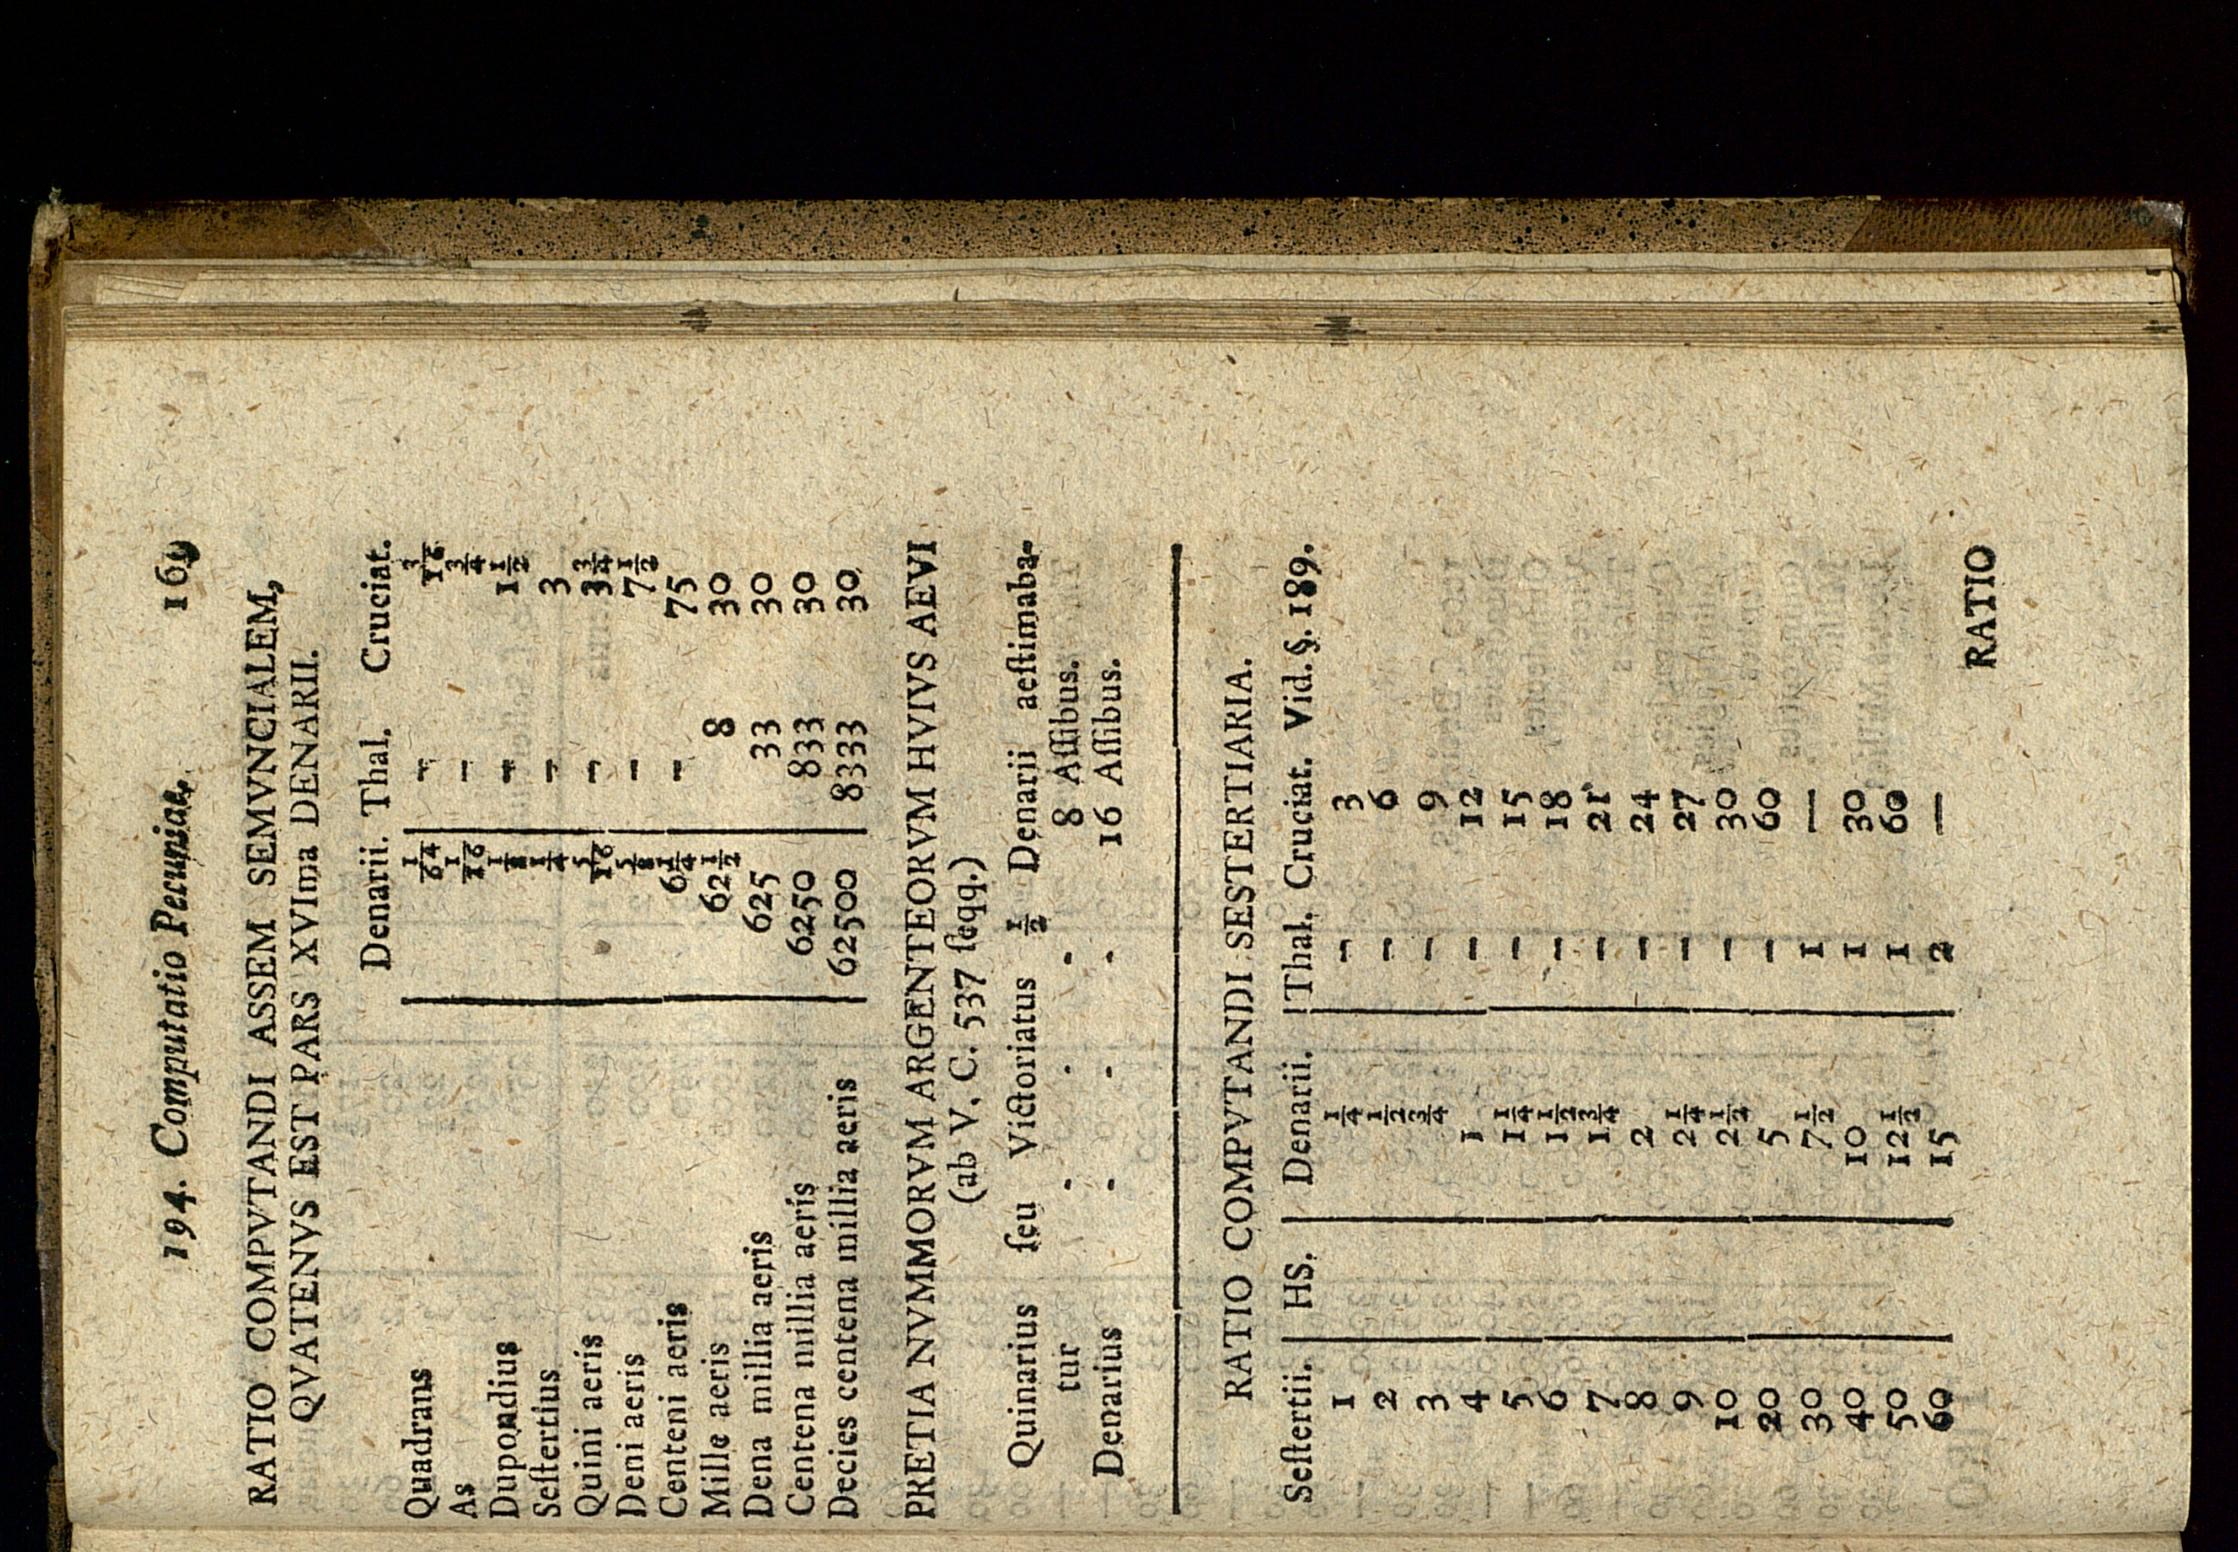 194. Computatio Pecuniae. 169
RATIO COMPVTANDI ASSEM SEMVNCIALEM,
QVATENVS EST PARS XVIma DENARII.
Denarii. Thal. Cruciat.
Quadrans 1/64 - 3/16
As 1/16 - 3/4
Dupondius 1/8 - 1 1/2
Seſtertius 1/4 - 3
Quini aeris 5/16 - 3 3/4
Deni aeris 5/8 - 7 1/2
Centeni aeris 6 1/4 - 75
Mille aeris 62 1/2 8 30
Dena millia aeris 625 33 30
Centena millia aeris 6250 833 30
Decies centena millia aeris 62500 8333 30
PRETIA NVMMORVM ARGENTEORVM HVIVS AEVI
(ab V. C. 537 ſeqq.)
Quinarius ſeu Victoriatus 1/2 Denarii aeſtimaba-
tur - - - 8 Aſſibus.
Denarius - - - 16 Aſſibus.
RATIO COMPVTANDI SESTERTIARIA.
Seſtertii. HS. Denarii. Thal. Cruciat. Vid. §. 189.
1 1/4 - 3
2 1/2 - 6
3 3/4 - 9
4 1 - 12
5 1 1/4 - 15
6 1 1/2 - 18
7 1 3/4 - 21
8 2 - 24
9 2 1/4 - 27
10 2 1/2 - 30
20 5 - 60
30 7 1/2 1 —
40 10 1 30
50 12 1/2 1 60
60 15 2 —
RATIO